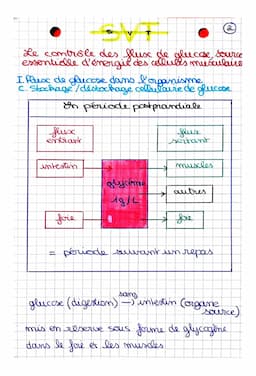 SVT
②
Le contrôle des flux de glucose, source
essentielle d'énergie des cellules musculaires
I. Flux de glucose dans l'organisme
C. Stockage / déstockage cellulaire de glucose
En période postprandiale
flux
entrant
flux
sortant
intestin
muscles
glycémie
1g/L
autres
foie
foie
= période suivant un repas
glucose (digestion) sang → intestin (organe
source)
mis en réserve sous forme de glycogène
dans le foie et les muscles